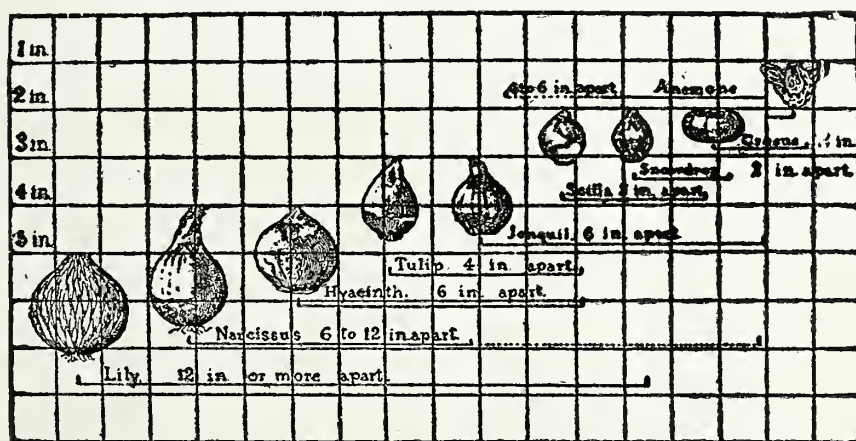 1 in.
2 in.
4 to 6 in apart Anemone
3 in.
Crocus
Snowdrop 2 in apart.
4 in.
Scilla 2 in. apart
5 in.
Jonquil, 6 in. apart
Tulip 4 in apart
Hyacinth, 6 in. apart.
Narcissus 6 to 12 in.apart
Lily, 12 in or more apart.